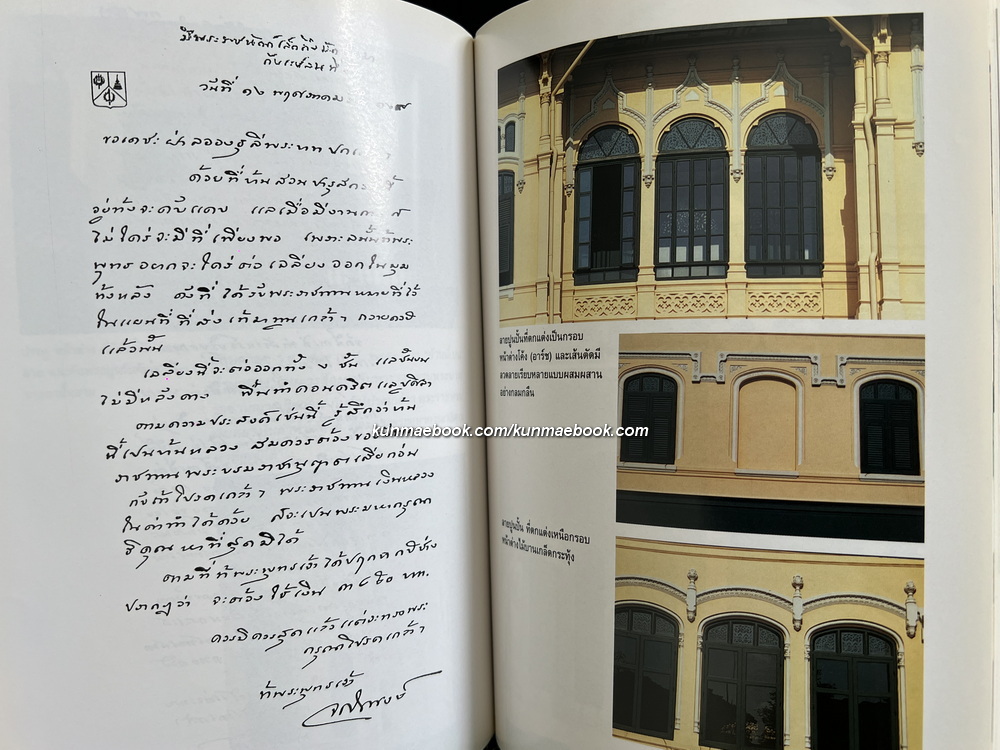 วันที่ ๑๖ พฤศภาคม
ขอเดชะ ฝ่าลอองธุลีพระบาทปกเกล้า
ด้วยที่บ้านสวน
อยู่ข้างจะคับแคบ แลเมื่อมีงาน
ไม่ใคร่จะมีที่เพียงพอ เพราะฉนั้นข้าพระ
พุทธ อยากจะใคร่ต่อเฉลียงออกในมุม
ข้างหลัง ดังที่ได้รับพระราชทานหมายที่ไว้
ในแผนที่ที่ส่งเข้ามาทูนเกล้าฯ ถวาย
แล้วนั้น
เฉลียงนี้จะต่อออกทั้ง ๒ ชั้น แลชั้นบน
ไม่มีหลังคา พื้นทำคอนกริต
ตามความประสงค์เช่นนี้ รู้สึกว่าบ้าน
นี้เปนบ้านหลวง สมควรต้องขอ
ราชทานพระบรมราชานุญาตเสียก่อน
ถ้าโปรดเกล้าฯ พระราชทานเงินหลวง
ในค่าทำได้ด้วย ก็จะเปนพระมหากรุณา
ธิคุณหาที่สุดมิได้
ตามที่ข้าพระพุทธเจ้าได้ปฤกษา
ปรากฎว่า จะต้องใช้เงิน บาท.
ควรมิควรสุดแล้วแต่จะทรงพระ
กรุณาโปรดเกล้าฯ
ข้าพระพุทธเจ้า
ลายปูนปั้นที่ตกแต่งเป็นกรอบ
หน้าต่างโค้ง (อาร์ช) และเส้นดัดมี
ลวดลายเรียบหลายแบบผสมผสาน
อย่างกลมกลืน
ลายปูนปั้น ที่ตกแต่งเหนือกรอบ
หน้าต่างไม้บานเกล็ดกระทุ้ง
kunmaebook.com/kunmaebook.com